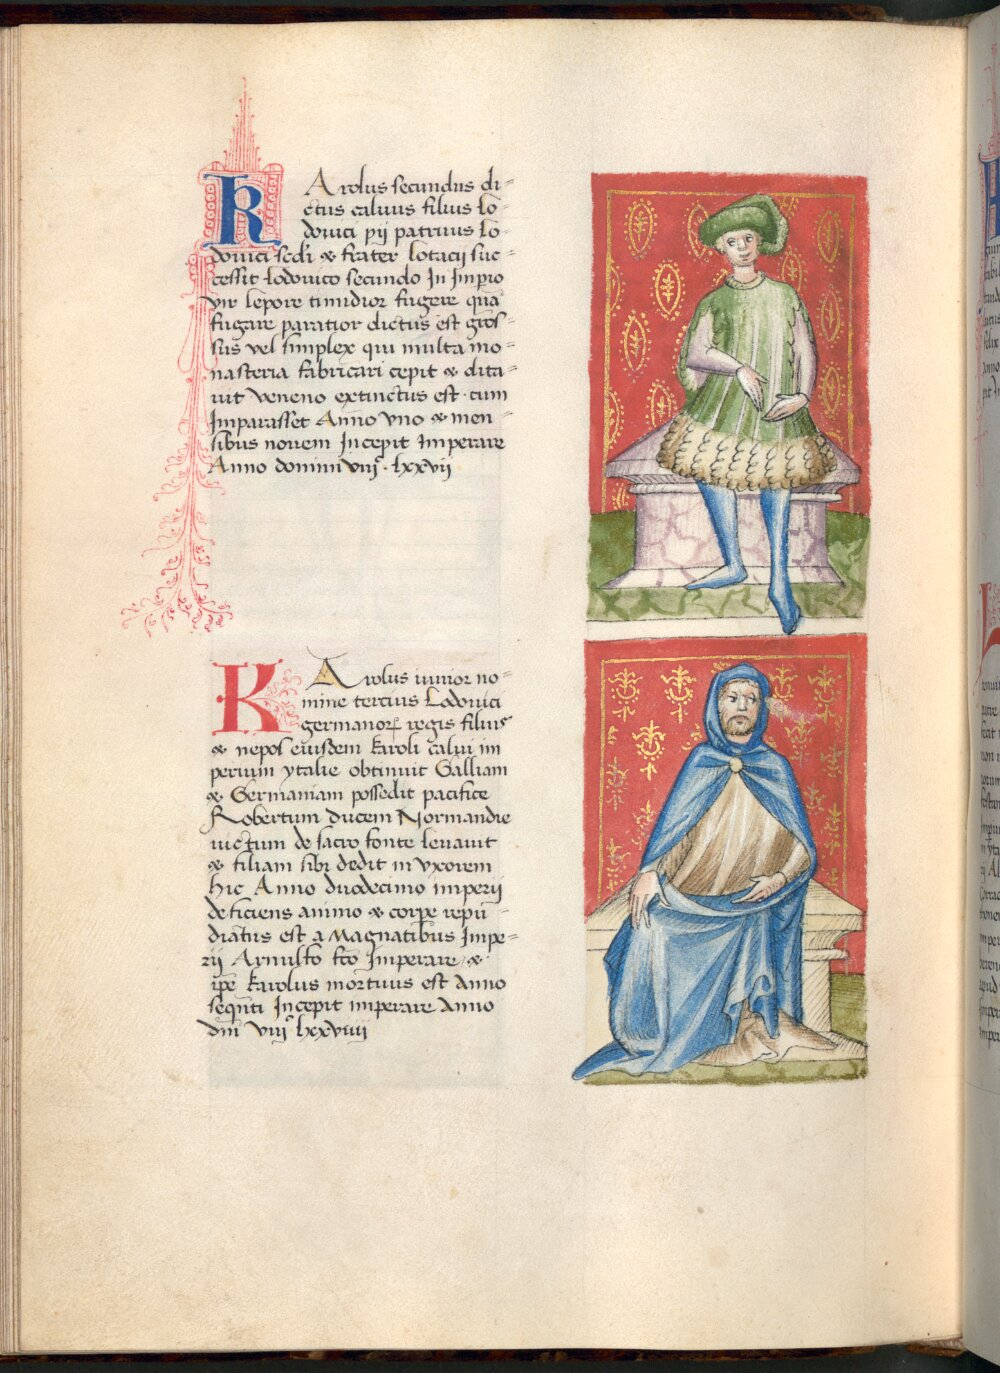 KArolus secundus di=
ctus caluus filius lo-
douici pij patruus lo-
douici scdi & frater lotarij suc=
cessit lodouico secundo In Impio
vir lepore timidior fugere qua
fugare paratior dictus est gros=
sus vel simplex qui multa mo=
nasteria fabricari cepit & dita=
uit veneno extinctus est cum
Imparasset Anno vno & men=
sibus nouem Incepit Imperare
Anno domini viijᶜ lxxvij
KArolus iunior no=
mine tercius Lodouici
germanoꝝ regis filius
& nepos eiusdem karoli calui im
perium ytalie obtinuit Galliam
& Germaniam possedit pacifice
Robertum ducem Normandie
uictum de sacro fonte leuauit
& filiam sibi dedit in vxorem
hic Anno duodecimo imperij
deficiens animo & corpe repu=
diatus est a Magnatibus Impe=
rij Arnulfo fco Imperare &
ipe karolus mortuus est anno
seqnti Incepit imperare Anno
dni viijᶜ lxxviiij